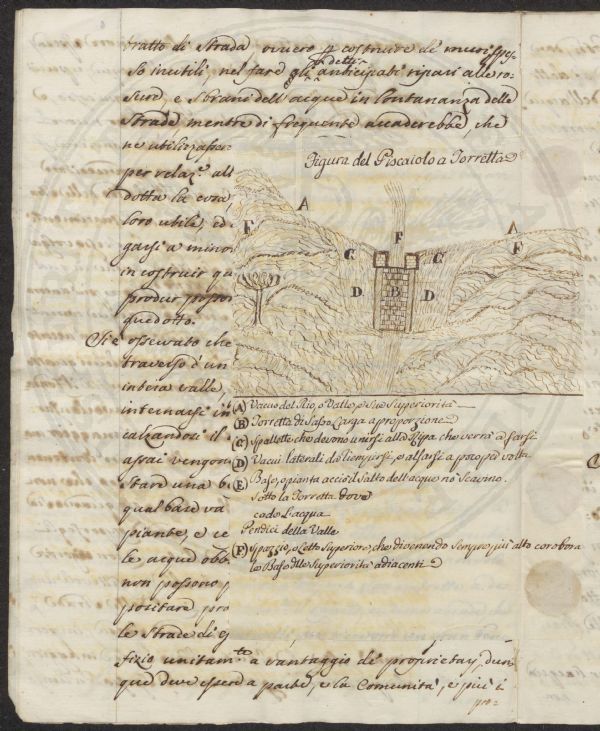 tratto di Strada ovvero p costruire de' muri spes-
so inutili, nel fare gli p detti anticipati ripari alle ro-
sure, e sbrani dell'acque in lontananza delle
Strade, mentre di frequente accaderebbe, che
ne utilizzasse
per relaz.e all
dotta la
loro utile, ed
garsi a mino
in costruir qu
produr
quedotto.
Si è osservato che
traverso d'un
intera valle
internarsi in
calzandosi il
assai vengon
stare una b
qual base va
piante, e ce
le acque obb
non possono p
positare pro
le Strade di q
fizio unitam.te a vantaggio de' proprietarj, dun
que deve essere a parte, e la Comunità, e più i
pro-
Figura del Piscaiolo a Torretta
A
A
F
F
F
C
C
D
B
D
A Vacuo del Rio, o Valle, e sue Superiorità
B Torretta di Sasso Larga a proporzione
C Spallette che devono unirsi alla Ripa che verrà a farsi
D Vacui laterali da riempirsi, e alzarsi a poco per volta
E Base, o pianta acciò il Salto dell'acque nõ Scavino.
Sotto la Torretta dove
cade l'acqua
Pendici della Valle
F Spazzio, o Letto Superiore, che divenendo sempre più alto corobora
le Base dlle Superiorità adiacenti